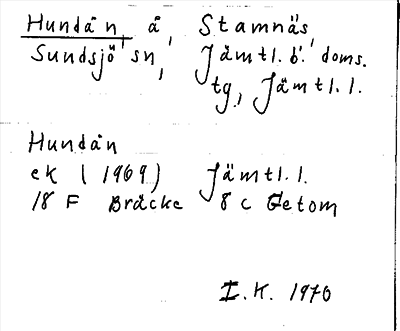 Hundån, å, Stamnäs,
Sundsjö sn, Jämtl. b. doms.
tg., Jämtl. l.
Hundån
ek (1969) Jämtl. l.
18 F Bräcke 8 c Getom
I.K. 1970